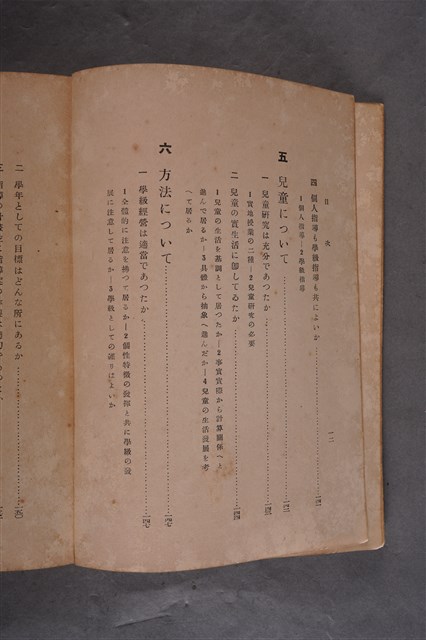 目次
一二
四 個人指導も學級指導も共によいか
1 個人指導—2 學級指導
五 兒童について
一 兒童研究は充分であつたか
1 實地授業の二種—2 兒童研究の必要
二 兒童の實生活に卽してゐたか
1 兒童の生活を基調として居つたか—2 事實實際から計算關係へと
進んで居るか—3 具體から抽象へ進んだか—4 兒童の生活發展を考
へて居るか
六 方法について
一 學級經營は適當であつたか
1 全體的に注意を拂つて居るか—2 個性特徵の發揮と共に學級の發
展に注意して居るか—3 學級としての
二 學年としての目標はどんな所にあるか